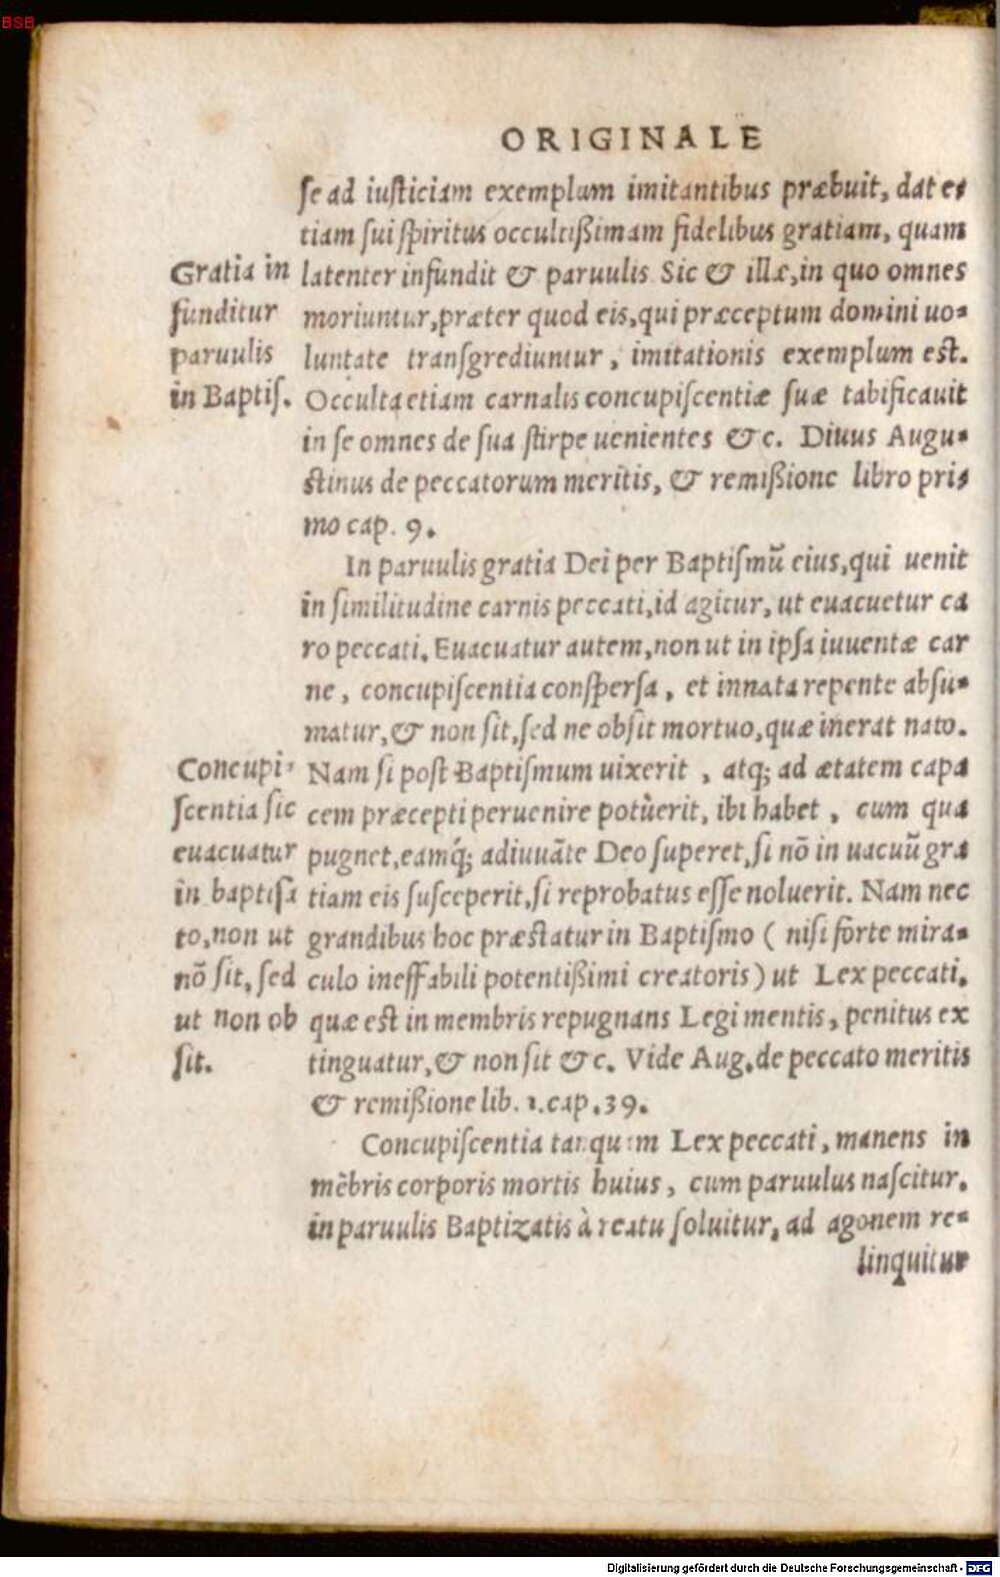 BSB
ORIGINALE
se ad iusticiam exemplum imitantibus præbuit, dat e-
tiam sui spiritus occultißimam fidelibus gratiam, quam
latenter infundit & paruulis Sic & illæ, in quo omnes
moriuntur, præter quod eis, qui præceptum domini uo-
luntate transgrediuntur, imitationis exemplum est.
Occulta etiam carnalis concupiscentiæ suæ tabificauit
in se omnes de sua stirpe uenientes &c. Diuus Augu-
stinus de peccatorum meritis, & remißione libro pri-
mo cap. 9.
Gratia in
funditur
paruulis
in Baptis.
In paruulis gratia Dei per Baptismũ eius, qui uenit
in similitudine carnis peccati, id agitur, ut euacuetur ca
ro peccati. Euacuatur autem, non ut in ipsa iuuentæ car
ne, concupiscentia conspersa, et innata repente absu-
matur, & non sit, sed ne obsit mortuo, quæ inerat nato.
Nam si post Baptismum uixerit, atq; ad ætatem capa
cem præcepti peruenire potùerit, ibi habet, cum qua
pugnet, eamq́; adiuuãte Deo superet, si nõ in uacuũ gra
tiam eis susceperit, si reprobatus esse noluerit. Nam nec
grandibus hoc præstatur in Baptismo ( nisi forte mira-
culo ineffabili potentißimi creatoris) ut Lex peccati,
quæ est in membris repugnans Legi mentis, penitus ex
tinguatur, & non sit &c. Vide Aug. de peccato meritis
& remißione lib. 1. cap. 39.
Concupi-
scentia sic
euacuatur
in baptisa
to, non ut
nõ sit, sed
ut non ob
sit.
Concupiscentia tanquam Lex peccati, manens in
mẽbris corporis mortis huius, cum paruulus nascitur,
in paruulis Baptizatis à reatu soluitur, ad agonem re-
linquitur
Digitalisierung gefördert durch die Deutsche Forschungsgemeinschaft - DFG